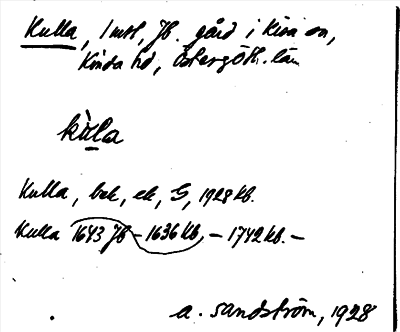 Kulla, 1 mtl, Jb. gård i Kisa sn,
Kinda hd, Östergötl. län
kùla
Kulla, bek, ek, G, 1928 kb.
Kulla 1643 Jb - 1636 kb. - 1742 kb. -
A. Sandström, 1928